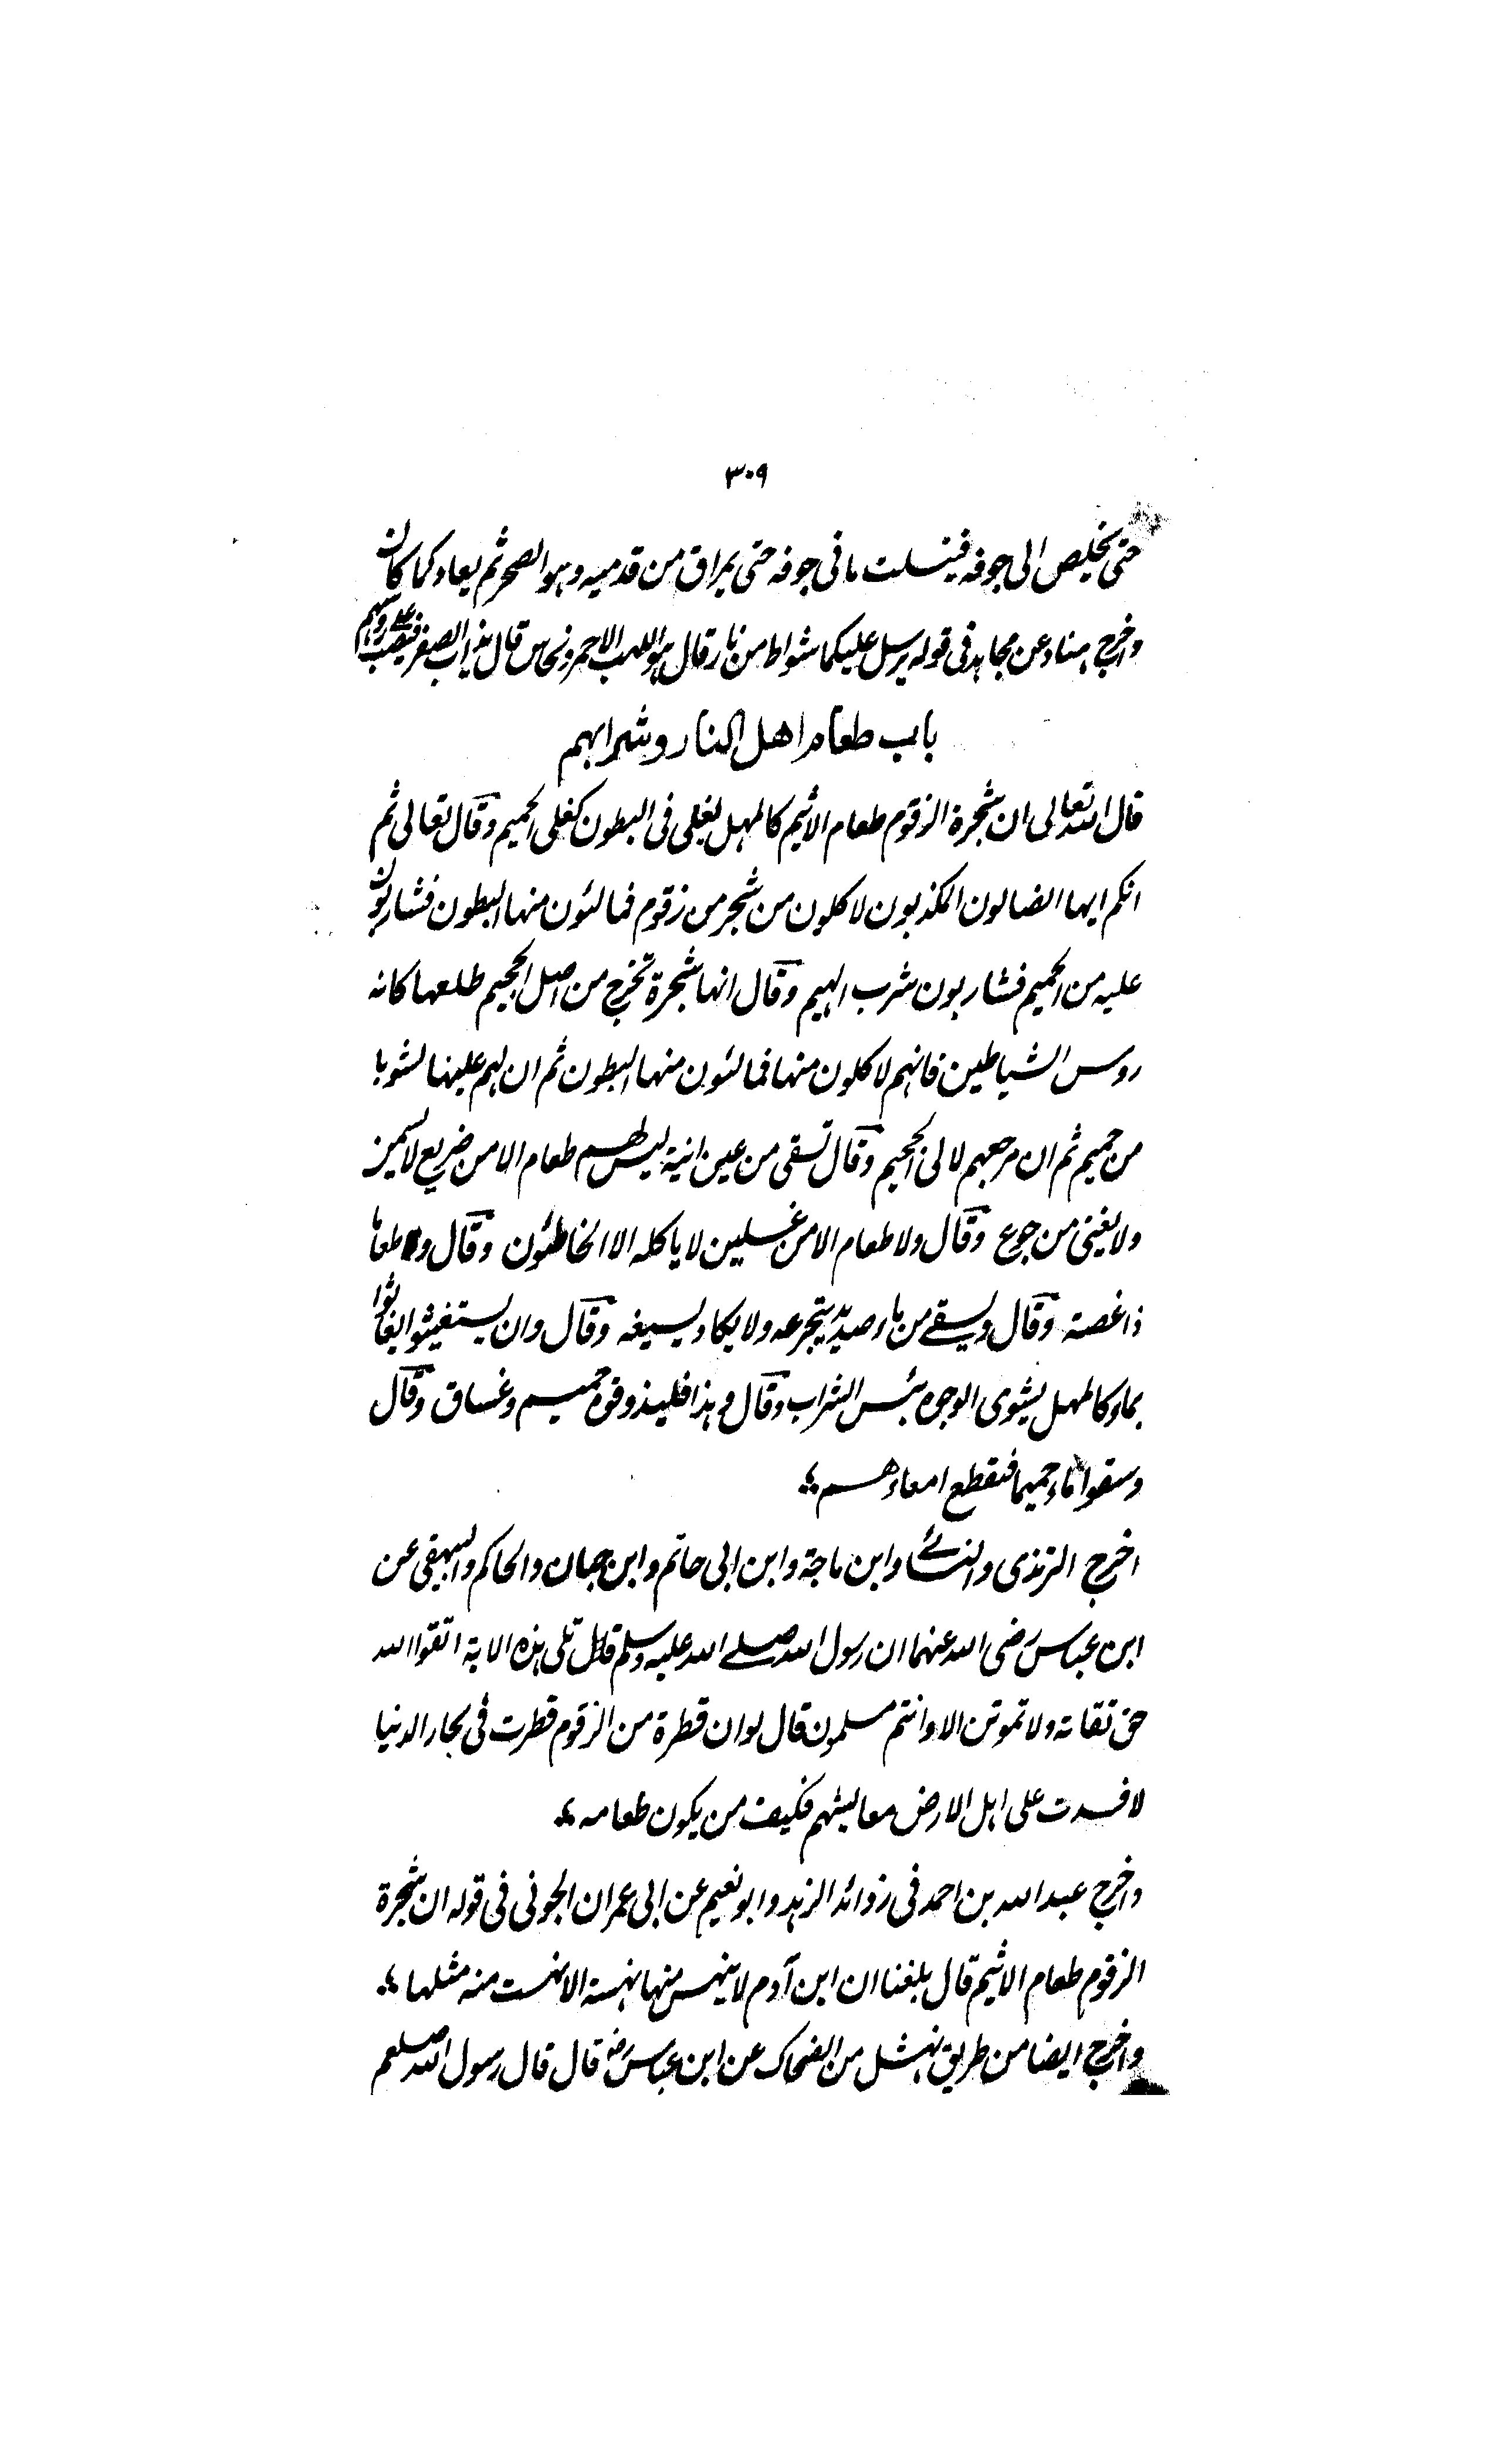 ٣٠٩
حتى يخلص الى جوفه فيسلت ما فى جوفه حتى يمراق من قدميه وهو الصهر ثم يعاد كما كان
واخرج هناد عن مجاهد فى قوله يرسل عليكما شواظ من نار قال هو اللهب الاحمر ونحاس قال يذاب الصفر فيصب على رؤسهم
باب طعام اهل النار وشرابهم
قال الله تعالى ان شجرة الزقوم طعام الاثيم كالمهل يغلى فى البطون كغلى الحميم وقال تعالى ثم
انكم ايها الضالون المكذبون لاكلون من شجر من زقوم فمالئون منها البطون فشاربون
عليه من الحميم فشاربون شرب الهيم وقال انها شجرة تخرج من اصل الجحيم طلعها كانه
روس الشياطين فانهم لاكلون منها فمالئون منها البطون ثم ان لهم عليها لشوبا
من حميم ثم ان مرجعهم لالى الجحيم وقال تسقى من عين انية ليس لهم طعام الا من ضريع لا يسمن
ولا يغنى من جوع وقال ولا طعام الا من غسلين لا ياكله الا الخاطئون وقال وطعاما
ذا غصة وقال ويسقے من ماء صديد يتجرعه ولا يكاد يسيغه وقال وان يستغيثوا يغاثوا
بماء كالمهل يشوى الوجوه بئس الشراب وقال هذا فليذوقوه حميم وغساق وقال
وسقوا ماء حميما فقطع امعاءهم
اخرج الترمذى والنسائے وابن ماجة وابن ابى حاتم وابن حبان والحاكم والبيهقى عن
ابن عباس رضى الله عنهما ان رسول الله صلے الله عليه وسلم قال تلى هذه الاية اتقوا الله
حق تقاته ولا تموتن الا وانتم مسلمون قال لو ان قطرة من الزقوم قطرت فى بحار الدنيا
لافسدت على اهل الارض معايشهم فكيف من يكون طعامه
واخرج عبد الله بن احمد فى زوائد الزهد وابو نعيم عن ابى عمران الجونى فى قوله ان شجرة
الزقوم طعام الاثيم قال بلغنا ان ابن آدم لا ينهس منها نهسة الا نهست منه مثلها
واخرج ايضا من طريق نهشل من الضحاك عن ابن عباس رض قال قال رسول الله صلعم